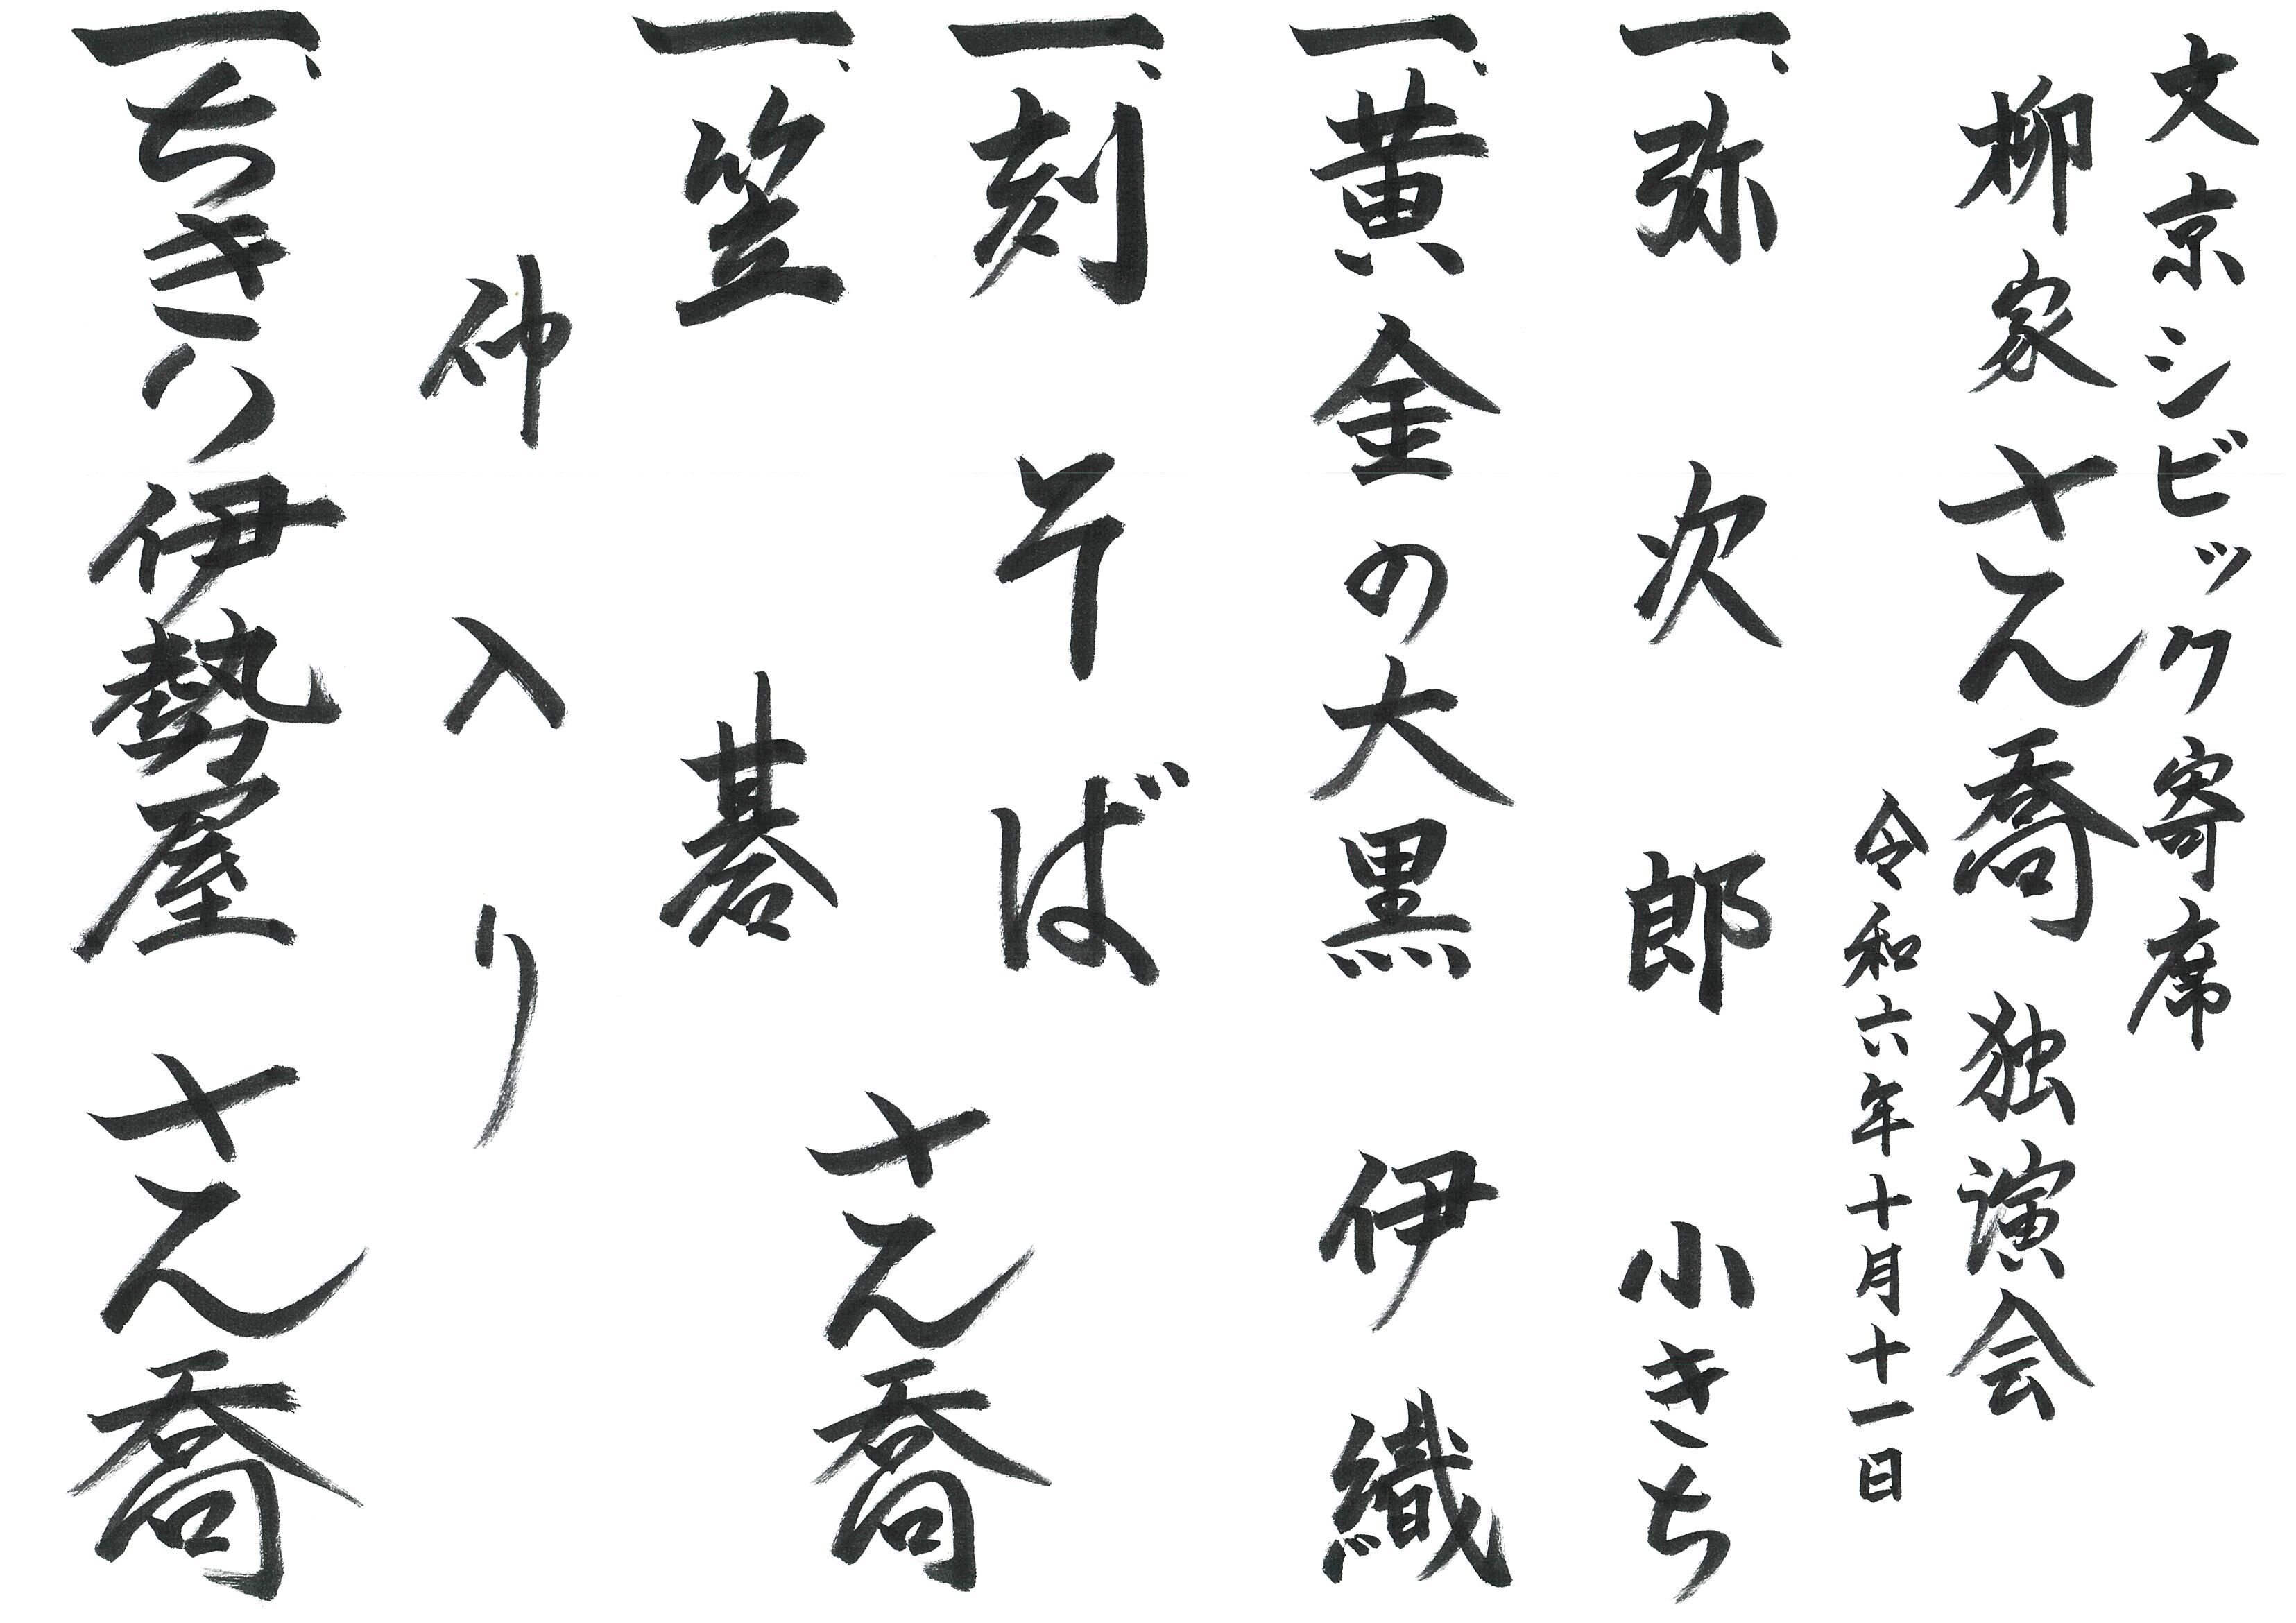 文京シビック寄席
柳家さん喬 独演会
令和六年十月十一日
一、弥次郎 小きち
一、黄金の大黒 伊織
一、刻そば
一、笠碁
さん喬
仲入り
一、ちきり伊勢屋 さん喬